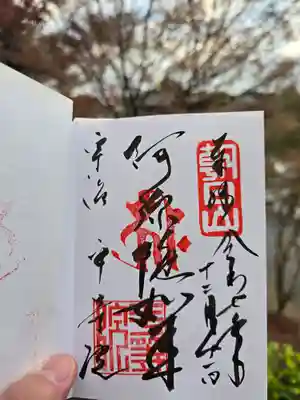 朝日山
奉拝 令和七年
十二月
阿弥陀如来
宇治 平等院